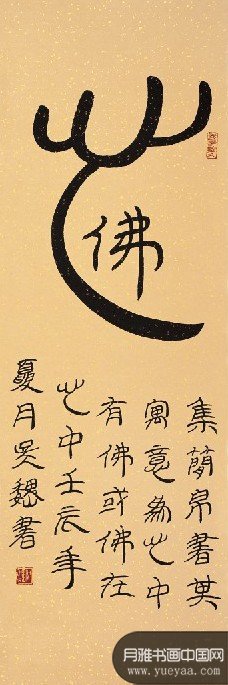 心
佛
集簡帛書其
寓意為心中
有佛或佛在
心中壬辰年
夏月吳魏書
月雅书画中国网
www.yueyaa.com